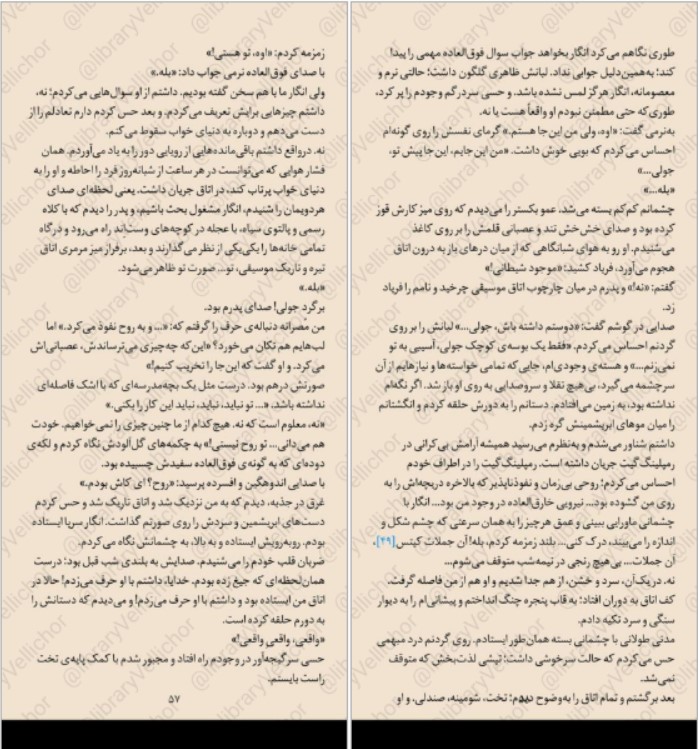 زمزمه کردم: «اوه، تو هستی!»
با صدای فوق‌العاده نرمی جواب داد: «بله.»
ولی انگار ما با هم سخن گفته بودیم. داشتم از او سوال‌هایی می‌کردم؛ نه،
داشتم چیزهایی برایش تعریف می‌کردم. و بعد حس کردم دارم تعادلم را از
دست می‌دهم و دوباره به دنیای خواب سقوط می‌کنم.
نه. درواقع داشتم باقی‌مانده‌هایی از رویایی دور را به یاد می‌آوردم. همان
فشار هوایی که می‌توانست در هر ساعت از شبانه‌روز فرد را احاطه و او را به
دنیای خواب پرتاب کند، در اتاق جریان داشت. یعنی لحظه‌ای صدای
هردویمان را شنیدم، انگار مشغول بحث باشیم، و پدر را دیدم که با کلاه
رسمی و پالتوی سیاه، با عجله در کوچه‌های وست‌اند راه می‌رود و درگاه
تمامی خانه‌ها را یکی‌یکی از نظر می‌گذارند و بعد، برفراز میز مرمری اتاق
تیره و تاریک موسیقی، تو... صورت تو ظاهر می‌شود.
«بله.»
برگرد جولی! صدای پدرم بود.
من مصرانه دنباله‌ی حرف را گرفتم که: «... و به روح نفوذ می‌کرد.» اما
لب‌هایم هم تکان می‌خورد؟ «این‌که چه‌چیزی می‌ترساندش، عصبانی‌اش
می‌کرد. و او گفت که این‌جا را تخریب کنیم!»
صورتش درهم بود. درست مثل یک بچه‌مدرسه‌ای که با اشک فاصله‌ای
نداشته باشد. «... تو نباید، نباید، نباید این کار را بکنی.»
«نه، معلوم است که نه. هیچ‌کدام از ما چنین چیزی را نمی‌خواهیم. خودت
هم می‌دانی... تو روح نیستی!» به چکمه‌های گل‌آلودش نگاه کردم و لکه‌ی
دوده‌ای که به گونه‌ی فوق‌العاده سفیدش چسبیده بود.
با صدایی اندوهگین و افسرده پرسید: «روح؟ ای کاش بودم.»
غرق در جذبه، دیدم که به من نزدیک شد و اتاق تاریک شد و حس کردم
دست‌های ابریشمین و سردش را روی صورتم گذاشت. انگار سرپا ایستاده
بودم. روبه‌رویش ایستاده و به بالا، به چشمانش نگاه می‌کردم.
ضربان قلب خودم را می‌شنیدم. صدایش به بلندی شب قبل بود؛ درست
همان لحظه‌ای که جیغ زده بودم. خدایا، داشتم با او حرف می‌زدم! حالا در
اتاق من ایستاده بود و داشتم با او حرف می‌زدم! و می‌دیدم که دستانش را
به دورم حلقه کرده است.
«واقعی، واقعی واقعی!»
حسی سرگیجه‌آور در وجودم راه افتاد و مجبور شدم با کمک پایه‌ی تخت
راست بایستم.
۵۷
طوری نگاهم می‌کرد انگار بخواهد جواب سوال فوق‌العاده مهمی را پیدا
کند؛ به‌همین‌دلیل جوابی نداد. لبانش ظاهری گلگون داشت؛ حالتی نرم و
معصومانه، انگار هرگز لمس نشده باشد. و حسی سردرگم وجودم را پر کرد،
طوری‌که حتی مطمئن نبودم او واقعاً هست یا نه.
به‌نرمی گفت: «اوه، ولی من این‌جا هستم.» گرمای نفسش را روی گونه‌ام
احساس می‌کردم که بویی خوش داشت. «من این‌جایم، این‌جا پیش تو،
جولی...»
«بله...»
چشمانم کم‌کم بسته می‌شد. عمو بکستر را می‌دیدم که روی میز کارش قوز
کرده بود و صدای خش‌خش تند و عصبانی قلمش را بر روی کاغذ
می‌شنیدم. او رو به هوای شبانگاهی که از میان درهای باز به درون اتاق
هجوم می‌آورد، فریاد کشید: «موجود شیطانی!»
گفتم: «نه!» و پدرم در میان چارچوب اتاق موسیقی چرخید و نامم را فریاد
زد.
صدایی در گوشم گفت: «دوستم داشته باش، جولی...» لبانش را بر روی
گردنم احساس می‌کردم. «فقط یک بوسه‌ی کوچک جولی، آسیبی به تو
نمی‌زنم...» و هسته‌ی وجودی‌ام، جایی‌که تمامی خواسته‌ها و نیازهایم از آن
سرچشمه می‌گیرد، بی‌هیچ تقلا و سروصدایی به روی او باز شد. اگر نگه‌ام
نداشته بود، به زمین می‌افتادم. دستانم را به دورش حلقه کردم و انگشتانم
را میان موهای ابریشمینش گره زدم.
داشتم شناور می‌شدم و به‌نظرم می‌رسید همیشه آرامش بی‌کرانی در
رمپلینگ‌گیت جریان داشته است. رمپلینگ‌گیت را در اطراف خودم
احساس می‌کردم؛ روحی بی‌زمان و نفوذناپذیر که بالاخره دریچه‌اش را به
روی من گشوده بود... نیرویی خارق‌العاده در وجود من بود... انگار با
چشمانی ماورایی ببینی و عمق هرچیز را به همان سرعتی که چشم شکل و
اندازه را می‌بیند، درک کنی... بلند زمزمه کردم، بله! آن جملات کیتس[۴۹]،
آن جملات... بی‌هیچ رنجی در نیمه‌شب متوقف می‌شوم...
نه. در یک‌آن، سرد و خشن، از هم جدا شدیم و او هم از من فاصله گرفت.
کف اتاق به دوران افتاد؛ به قاب پنجره چنگ انداختم و پیشانی‌ام را به دیوار
سنگی و سرد تکیه دادم.
مدتی طولانی با چشمانی بسته همان‌طور ایستادم. روی گردنم درد مبهمی
حس می‌کردم که حالت سرخوشی داشت؛ تپشی لذت‌بخش که متوقف
نمی‌شد.
بعد برگشتم و تمام اتاق را به‌وضوح دیدم؛ تخت، شومینه، صندلی. و او